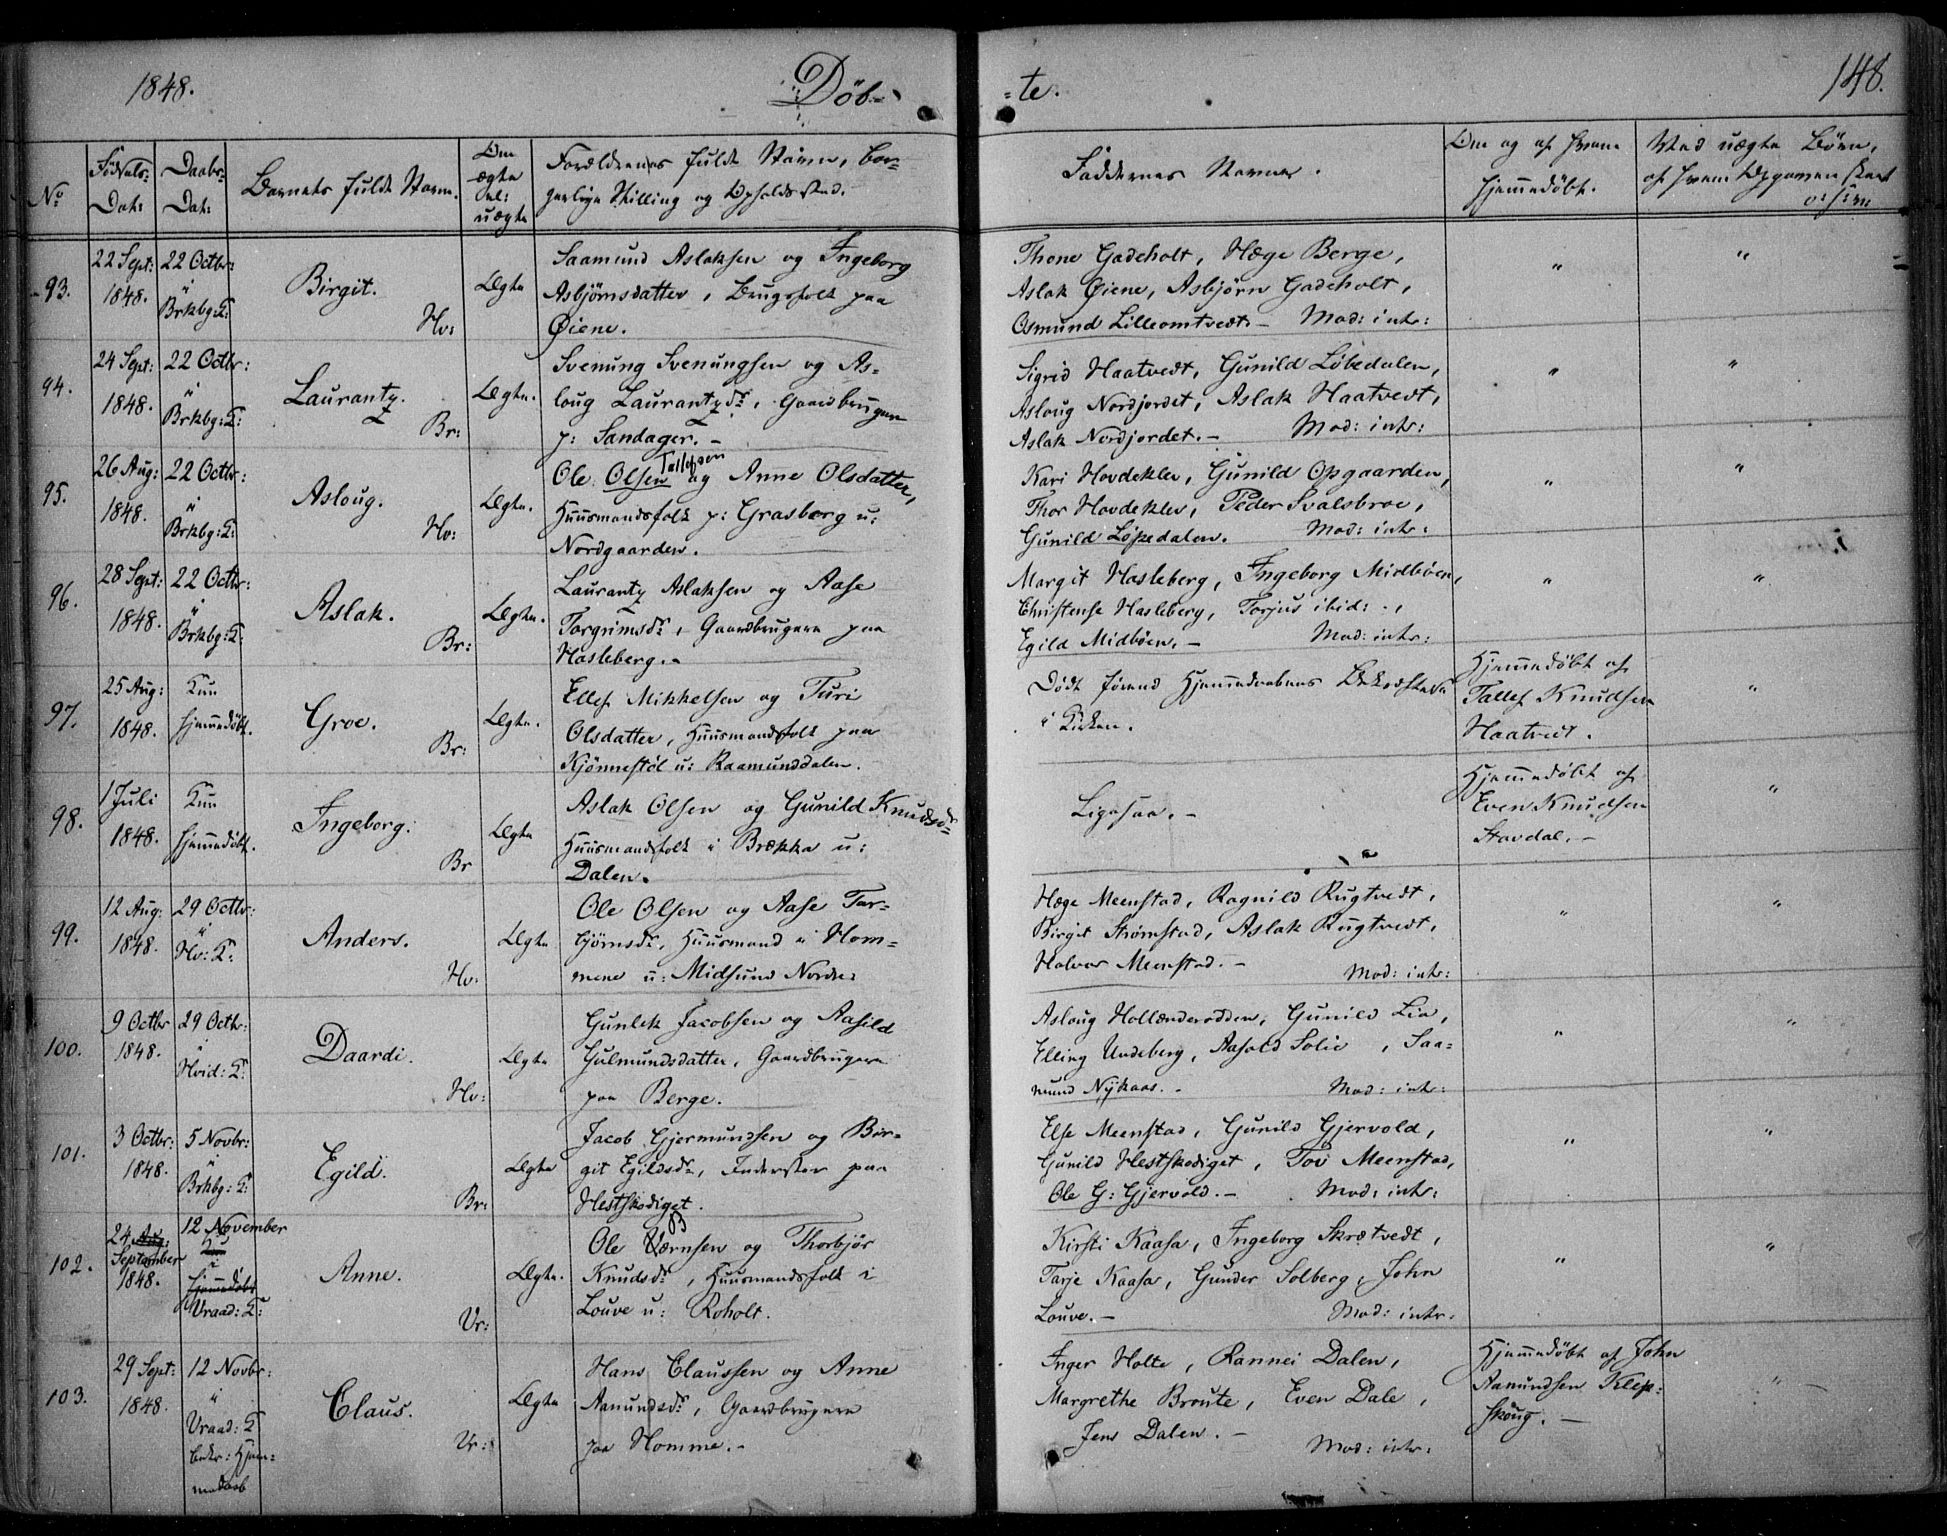 1848.
Döb-
-te.
148.
No
Födsels-
Dat:
Daabs-
Dat:
Barnets fulde Navn.
Om
ægte
el:
uægte
Forældrenes fulde Navn, bor-
gerlige Stilling og Opholdssted.
Faddernes Navne.
Om og af hvem
hjemmedøbt.
Ved uægte Børn,
af hvem Opgaven skeet
93.
22 Sept:
1848.
22 Octbr:
i
Brkbg: K:
Birgit.
Hv:
Ægte
Saamund Aslaksen og Ingeborg
Asbjörnsdatter, Brugsfolk paa
Øiene.
Thone Gadeholt, Hæge Berge,
Aslak Øiene, Asbjörn Gadeholt,
Osmund Lilleomtvedt. – Mod: intr:
"
"
94.
24 Sept:
1848.
22 Octbr:
i
Brkbg: K:
Laurantz.
Br:
Ægte.
Svenung Svenungsen og As-
loug Laurantzdr, Gaardbrugere
p: Sandager. –
Sigrid Haatvedt, Gunild Löbedalen,
Asloug Nordjordet, Aslak Haatvedt,
Aslak Nordjordet. – Mod: intr:
"
"
95.
26 Aug:
1848.
22 Octbr:
i
Brkbg: K:
Asloug.
Hv:
Ægte.
Tallefsen
Ole Olsen og Anne Olsdatter,
Huusmandsfolk p: Grasborg u:
Nordgaarden.
Kari Hovdeklev, Gunild Opgaarden,
Thor Hovdeklev, Peder Svalsbroe,
Gunild Løpedalen. Mod: intr:
"
"
96.
28 Sept:
1848.
22 Octbr:
i
Brkbg: K:
Aslak.
Br:
Ægte.
Laurantz Aslaksen og Aase
Torgrimsdr, Gaardbrugere paa
Hasleberg. –
Margit Hasleberg, Ingeborg Midböen,
Christense Hasleberg, Torjus ibid: .,
Egild Midböen. – Mod: intr:
"
"
97.
25 Aug:
1848.
Kun
hjemmedøbt.
Groe.
Br:
Ægte.
Ellef Mikkelsen og Turi
Olsdatter, Huusmandsfolk paa
Kjönnestöl u: Raamunddalen.
Dødt førend Hjemmedaabens Bekræftelse
i Kirken.
Hjemmedøbt af
Tallef Knudsen
Haatvedt.
"
98.
1 Juli
1848.
Kun
hjemmedøbt.
Ingeborg.
Br
Ægte
Aslak Olsen og Gunild Knudsdr
Huusmandsfolk i Brække u:
Dalen.
Ligesaa. –
Hjemmedøbt af
Even Knudsen
Stavdal. –
"
99.
12 Aug:
1848.
29 Octbr:
i
Hv: K:
Anders.
Hv:
Ægte
Ole Olsen og Aase Tor-
björnsdr, Huusmand i Hom-
mene u: Midsund Nordre
Hæge Meenstad, Ragnild Rugtvedt,
Birgit Strømstad, Aslak Rugtvedt,
Halvor Meenstad. – Mod: intr:
"
"
100.
9 Octbr
1848.
29 Octbr:
i
Hvid: K:
Daardi.
Hv:
Ægte
Gunlek Jacobsen og Aasild
Gulmundsdatter, Gaardbrugere
paa Berge.
Asloug Hollænderodden, Gunild Lia,
Elling Undeberg, Aasold Solie, Saa-
mund Nykaas. – Mod: intr:
"
"
101.
3 Octbr:
1848.
5 Novbr:
i
Brkbg: K:
Egild.
Br:
Ægte
Jacob Gjermundsen og Bir-
git Egildsdr, Inderster paa
Hestskodiget.
Else Meenstad, Gunild Gjervold,
Gunild Hestskodiget, Tov Meenstad,
Ole G: Gjervold. – Mod: intr:
"
"
102.
24 Aug:
September
1848.
12 November
Kun
i
hjemmedøbt
Vraad: K:
Anne.
Vr:
Ægte.
B
Ole Værnsen og Thorbjör
Knudsdr, Huusmandsfolk i
Louve u: Roholt.
Kirsti Kaasa, Ingeborg Skrætvedt,
Tarje Kaasa, Gunder Solberg, John
Louve. – Mod: intr:
"
"
103.
29 Sept:
1848.
12 Novbr:
i
Vraad: K
bekr: Hjem-
medaab
Claus.
Vr:
Ægte
Hans Claussen og Anne
Aanundsdr, Gaardbrugere
paa Homme. –
Inger Holte, Rannei Dalen,
Margrethe Broute, Even Dale,
Jens Dalen. – Mod: intr:
Hjemmedøbt af John
Aanundsen Klep-
skoug. –
"